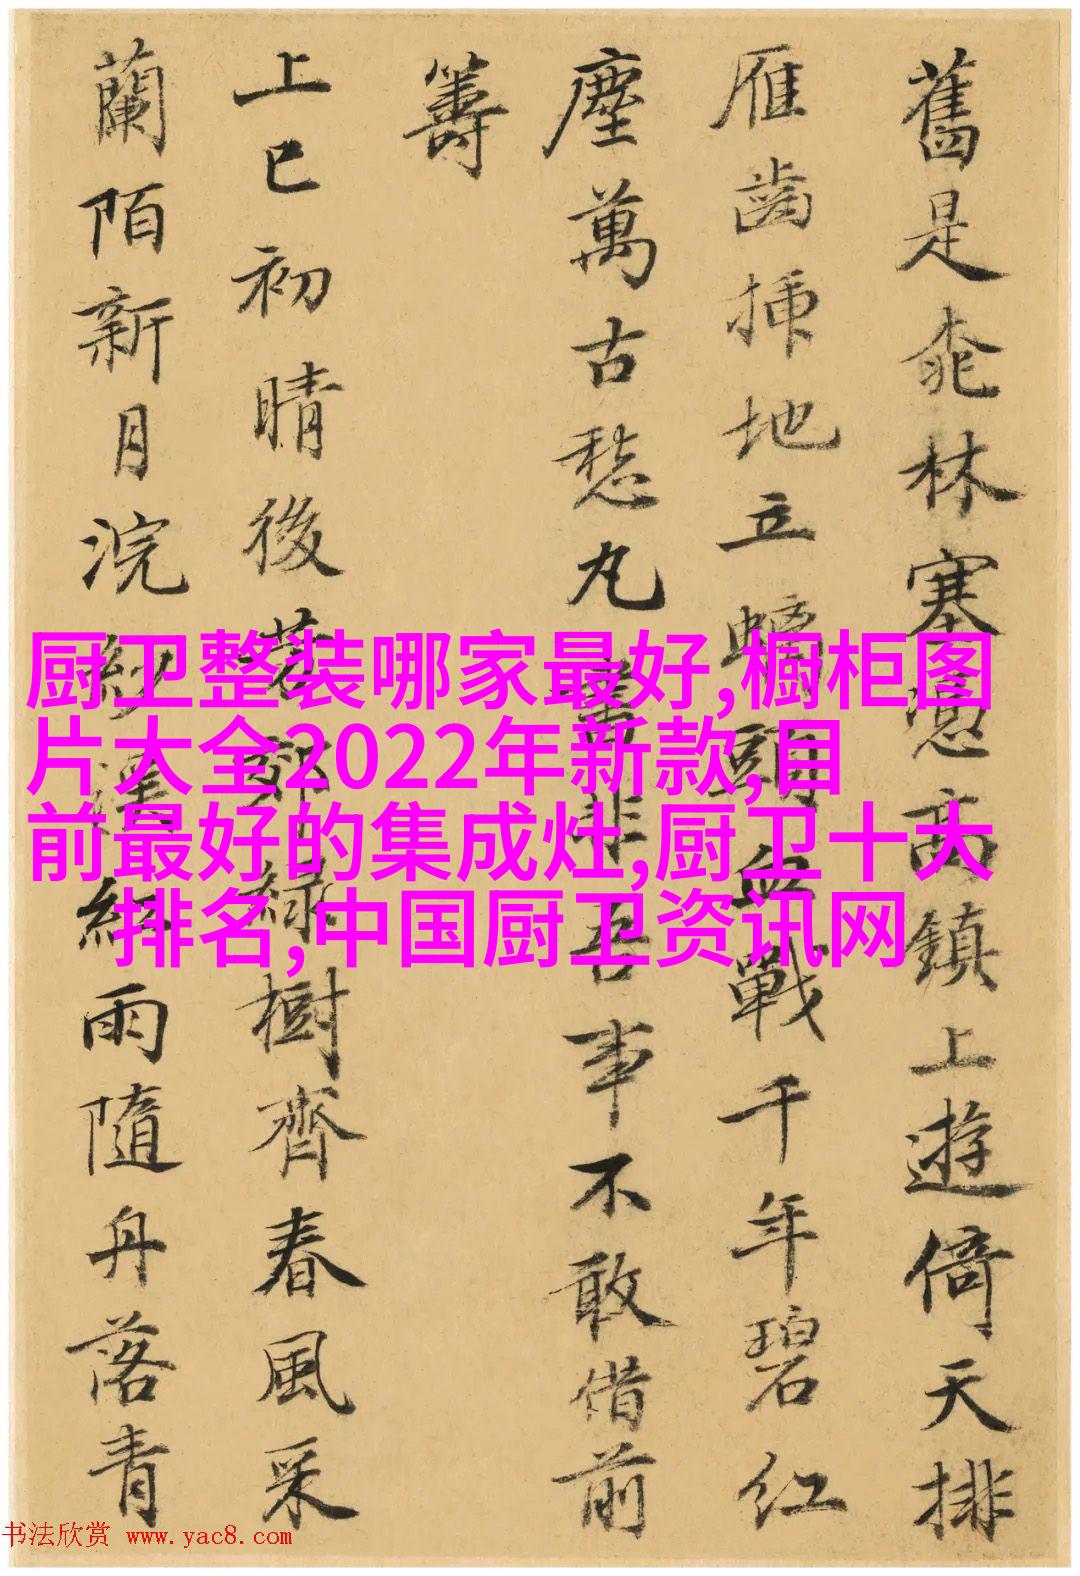 舊是桃林塞憑高鎮上遊倚天排
雁齒插地立螭頭血戰千年碧紅
塵萬古愁丸非吾事不敢借前
籌
上巳初晴後若耶綠樹齊春風采
蘭陌新月浣紗溪細雨隨舟落青
厨卫整装哪家最好,橱柜图
片大全2022年新款,目
前最好的集成灶,厨卫十大
排名,中国厨卫资讯网
书法欣赏 www.yac8.com